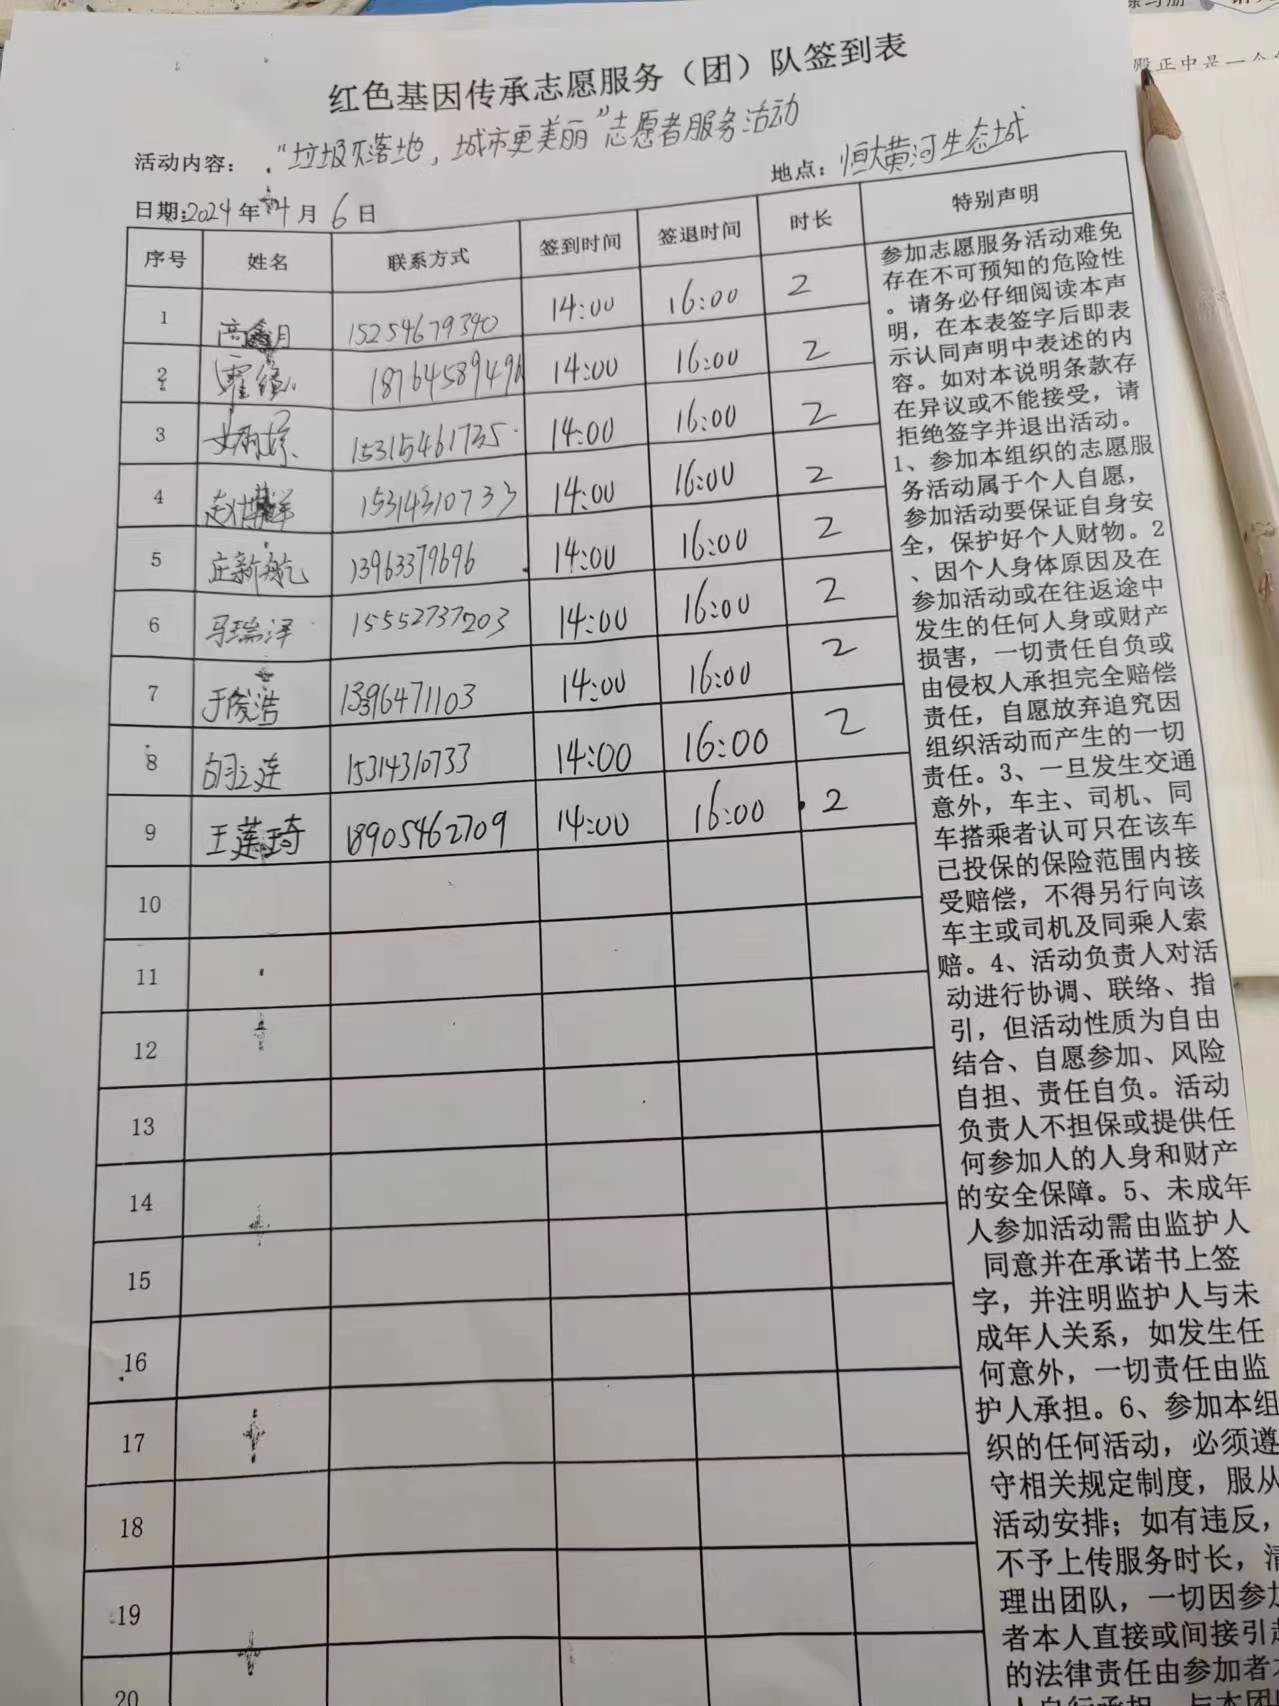 红色基因传承志愿服务（团）队签到表
活动内容："垃圾不落地，城市更美丽"志愿者服务活动
地点：恒大黄河生态城
日期:2024年4月6日
序号 姓名 联系方式 签到时间 签退时间 时长 特别声明
1 高鑫月 15254679390 14:00 16:00 2
2 18764589496 14:00 16:00 2
3 15315461735 14:00 16:00 2
4 赵博祥 15314310733 14:00 16:00 2
5 庄新航 13963379696 14:00 16:00 2
6 马瑞泽 15552737203 14:00 16:00 2
7 于俊浩 1396471103 14:00 16:00 2
8 15314310733 14:00 16:00 2
9 王莲琦 18905462709 14:00 16:00 2
10
11
12
13
14
15
16
17
18
19
20
参加志愿服务活动难免
存在不可预知的危险性
。请务必仔细阅读本声
明，在本表签字后即表
示认同声明中表述的内
容。如对本说明条款存
在异议或不能接受，请
拒绝签字并退出活动。
1、参加本组织的志愿服
务活动属于个人自愿，
参加活动要保证自身安
全，保护好个人财物。2
、因个人身体原因及在
参加活动或在往返途中
发生的任何人身或财产
损害，一切责任自负或
由侵权人承担完全赔偿
责任，自愿放弃追究因
组织活动而产生的一切
责任。3、一旦发生交通
意外，车主、司机、同
车搭乘者认可只在该车
已投保的保险范围内接
受赔偿，不得另行向该
车主或司机及同乘人索
赔。4、活动负责人对活
动进行协调、联络、指
引，但活动性质为自由
结合、自愿参加、风险
自担、责任自负。活动
负责人不担保或提供任
何参加人的人身和财产
的安全保障。5、未成年
人参加活动需由监护人
同意并在承诺书上签
字，并注明监护人与未
成年人关系，如发生任
何意外，一切责任由监
护人承担。6、参加本组
织的任何活动，必须遵
守相关规定制度，服从
活动安排；如有违反，
不予上传服务时长，清
理出团队，一切因参加
者本人直接或间接引起
的法律责任由参加者本
殿正中是一个